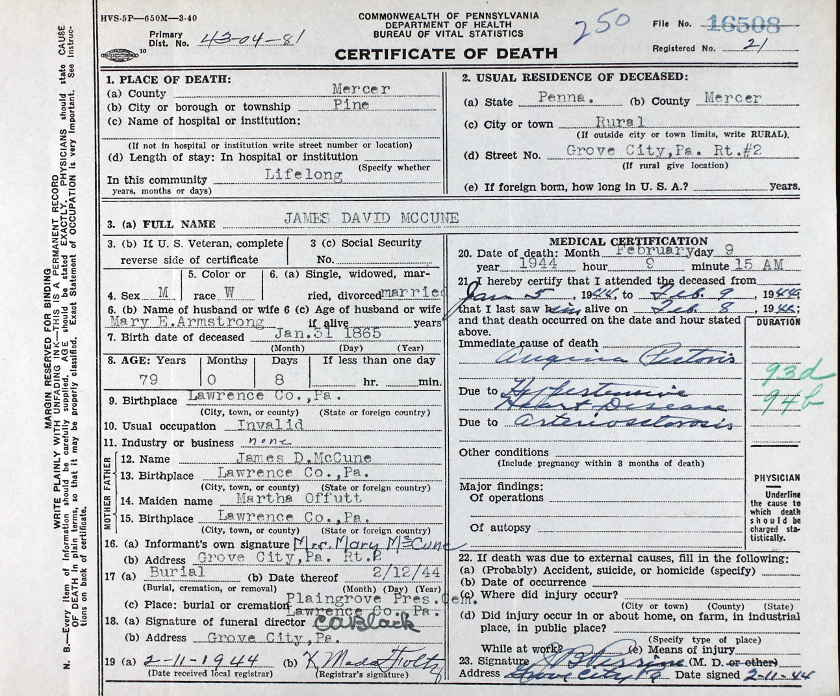 HVS-5P—650M—3-40
COMMONWEALTH OF PENNSYLVANIA
DEPARTMENT OF HEALTH
BUREAU OF VITAL STATISTICS
250
File No. 16508
Primary
Dist. No. 43-04-81
Registered No. 21
CERTIFICATE OF DEATH
1. PLACE OF DEATH:
(a) County Mercer
(b) City or borough or township Pine
(c) Name of hospital or institution:
(If not in hospital or institution write street number or location)
(d) Length of stay: In hospital or institution
(Specify whether
In this community Lifelong
years, months or days)
2. USUAL RESIDENCE OF DECEASED:
(a) State Penna. (b) County Mercer
(c) City or town Rural
(If outside city or town limits, write RURAL).
(d) Street No. Grove City,Pa. Rt.#2
(If rural give location)
(e) If foreign born, how long in U. S. A.? years.
3. (a) FULL NAME JAMES DAVID MCCUNE
3. (b) If U. S. Veteran, complete
reverse side of certificate
3 (c) Social Security
No.
4. Sex M
5. Color or
race W
6. (a) Single, widowed, mar-
ried, divorced married
6. (b) Name of husband or wife 6 (c) Age of husband or wife
Mary E.Armstrong if alive years
7. Birth date of deceased Jan.31 1865
(Month) (Day) (Year)
8. AGE: Years Months Days If less than one day
79 0 8 hr. min.
9. Birthplace Lawrence Co.,Pa.
(City, town, or county) (State or foreign country)
10. Usual occupation Invalid
11. Industry or business none
FATHER
12. Name James D.McCune
13. Birthplace Lawrence Co.,Pa.
(City, town, or county) (State or foreign country)
MOTHER
14. Maiden name Martha Offutt
15. Birthplace Lawrence Co.,Pa.
(City, town, or county) (State or foreign country)
16. (a) Informant's own signature Mrs. Mary McCune
(b) Address Grove City,Pa. Rt.2
17 (a) Burial (b) Date thereof 2/12/44
(Burial, cremation, or removal) (Month) (Day) (Year)
(c) Place: burial or cremation Plaingrove Pres.Cem.
Lawrence Co.,Pa.
18. (a) Signature of funeral director C.O.Black
(b) Address Grove City,Pa.
19 (a) 2-11-1944 (b)
(Date received local registrar) (Registrar's signature)
MEDICAL CERTIFICATION
20. Date of death: Month February day 9
year 1944 hour 9 minute 15 AM
21. I hereby certify that I attended the deceased from
Jan 5, 1944, to Feb. 9, 1944
that I last saw him alive on Feb. 8, 1944;
and that death occurred on the date and hour stated
above.
DURATION
Immediate cause of death
Angina Pectoris
93d
94b
Due to Hypertensive
Heart Disease
Due to arteriosclerosis
Other conditions
(Include pregnancy within 3 months of death)
Major findings:
Of operations
Of autopsy
PHYSICIAN
Underline
the cause to
which death
should be
charged sta-
tistically.
22. If death was due to external causes, fill in the following:
(a) (Probably) Accident, suicide, or homicide (specify)
(b) Date of occurrence
(c) Where did injury occur?
(City or town) (County) (State)
(d) Did injury occur in or about home, on farm, in industrial
place, in public place?
(Specify type of place)
While at work? (e) Means of injury
23. Signature (M. D. or other)
Address Grove City Pa Date signed 2-11-44
MARGIN RESERVED FOR BINDING
WRITE PLAINLY WITH UNFADING INK—THIS IS A PERMANENT RECORD
N. B.—Every item of information should be carefully supplied. AGE should be stated EXACTLY. PHYSICIANS should state CAUSE
OF DEATH in plain terms, so that it may be properly classified. Exact Statement of OCCUPATION is very important. See instruc-
tions on back of certificate.